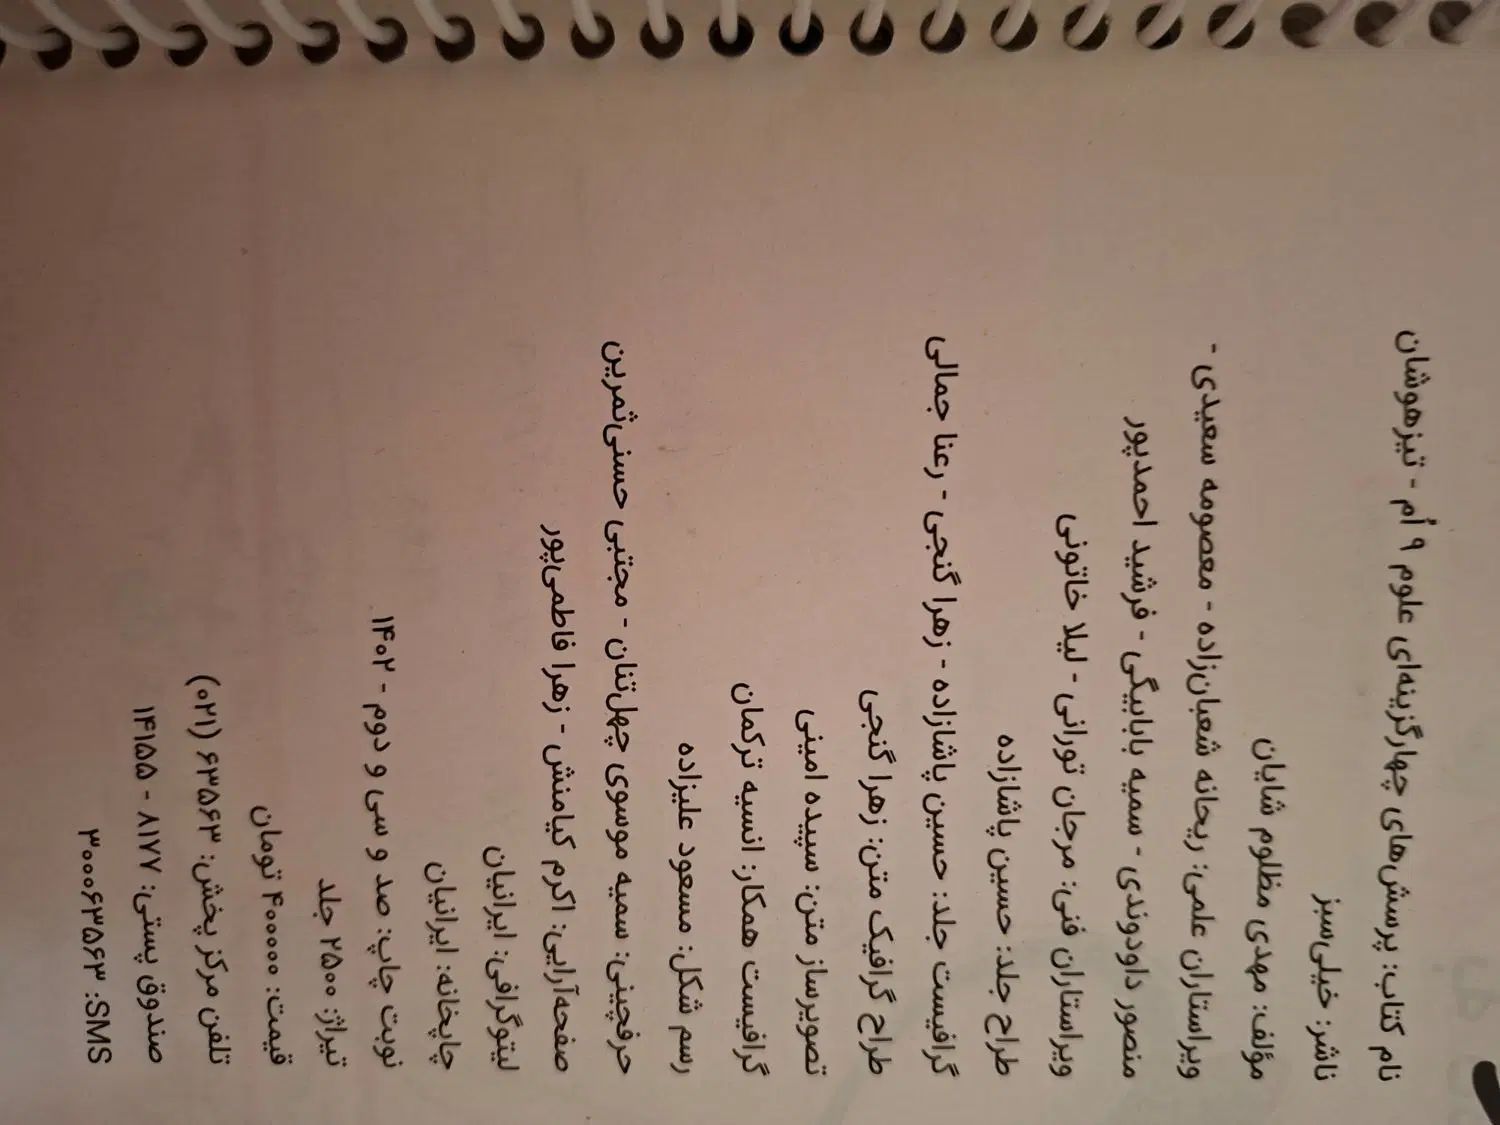 نام کتاب: پرسش‌های چهارگزینه‌ای علوم ۹ اُم - تیزهوشان
ناشر: خیلی‌سبز
مؤلف: مهدی مظلوم شایان
ویراستاران علمی: ریحانه شعبان‌زاده - معصومه سعیدی -
منصور داودوندی - سمیه بابابیگی - فرشید احمدپور
ویراستاران فنی: مرجان تورانی - لیلا خاتونی
طراح جلد: حسین پاشازاده
گرافیست جلد: حسین پاشازاده - زهرا گنجی - رعنا جمالی
طراح گرافیک متن: زهرا گنجی
تصویرساز متن: سپیده امینی
گرافیست همکار: انسیه ترکمان
رسم شکل: مسعود علیزاده
حرفچینی: سمیه موسوی چهل‌تنان - مجتبی حسنی‌ثمرین
صفحه‌آرایی: اکرم کیامنش - زهرا فاطمی‌پور
لیتوگرافی: ایرانیان
چاپخانه: ایرانیان
نوبت چاپ: صد و سی و دوم - ۱۴۰۲
تیراژ: ۲۵۰۰ جلد
قیمت: ۴۰۰۰۰۰ تومان
تلفن مرکز پخش: ۶۳۵۶۳ (۰۲۱)
صندوق پستی: ۸۱۷۷ - ۱۴۱۵۵
SMS: ۳۰۰۰۶۳۵۶۳